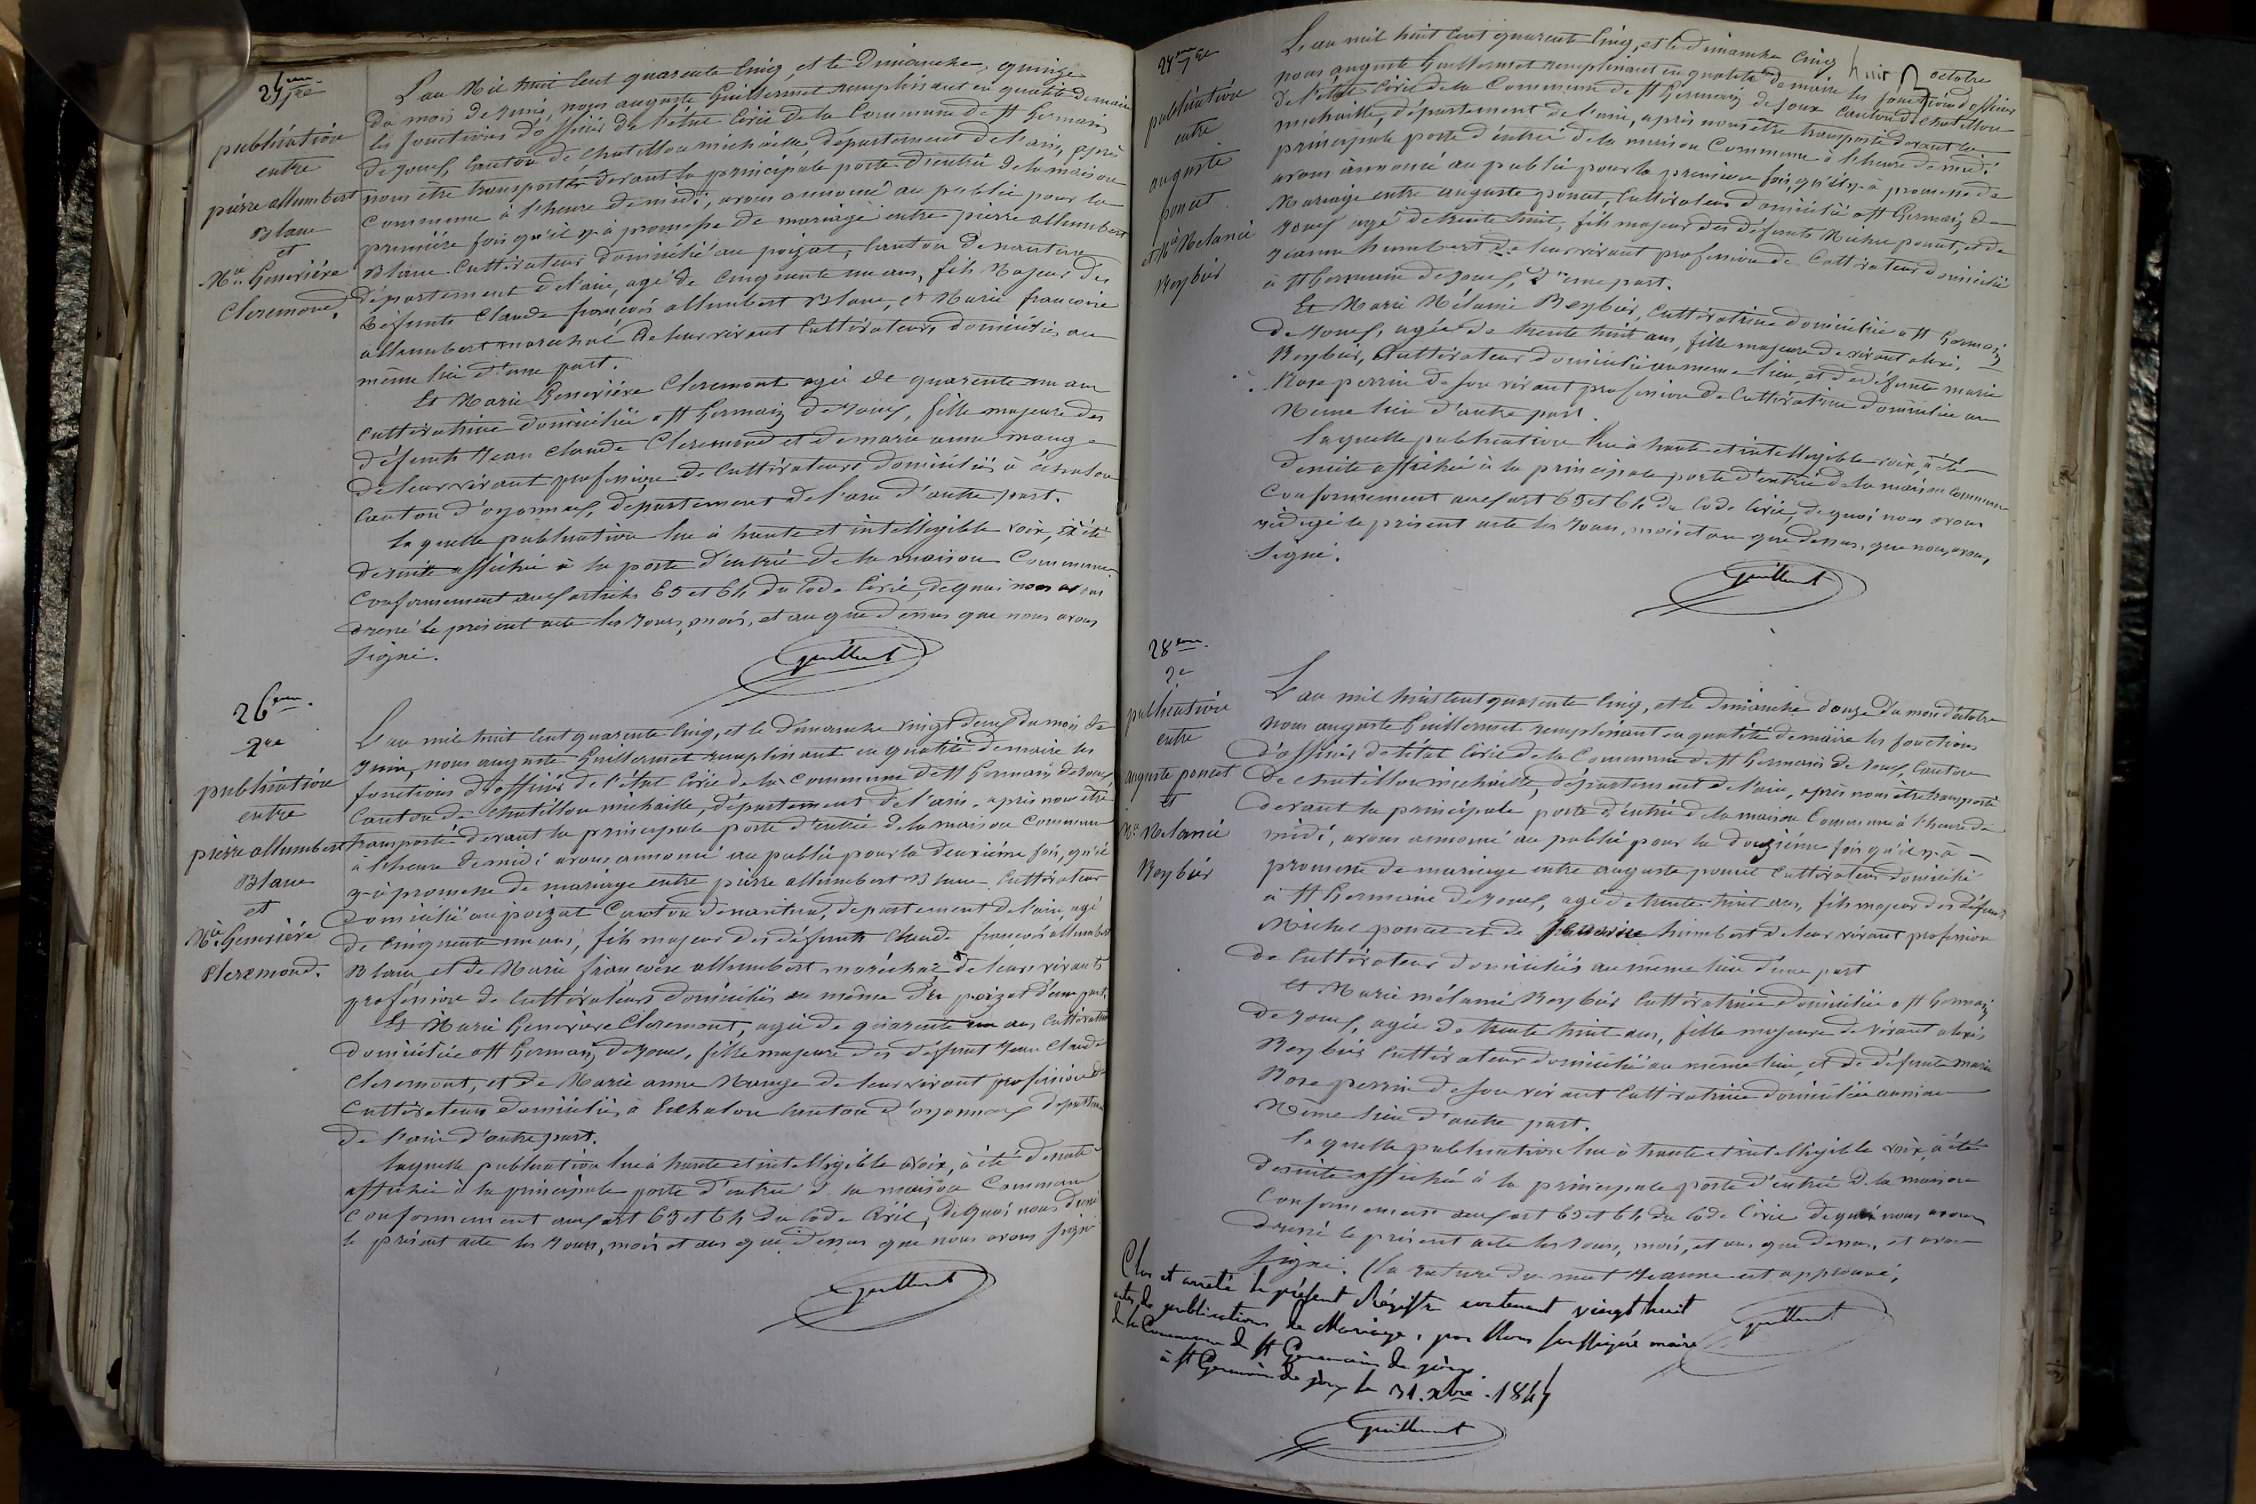 25eme
1re
publication
entre
pierre allumbert
Blanc
et
Mie Genevière
Cleremond.
L'an Mil huit Cent quarente Cinq, et le Dimanche, quinze
du mois de Juin, nous auguste Guillermet remplissant en qualité de maire
les fonctions d'officier de l'état Civil de la Commune de St Germain
de Joux, Canton de Chatillon michaille, département de l'ain, après
nous être transporter devant la principale porte d'entrée de la maison
Commune à l'heure de midi, avons annoncé au public pour la
première fois qu'il y-à promesse de mariage entre pierre allumbert
Blanc Cultivateur domicilié au poizat, Canton de nantua
département de l'ain, agé de Cinquente un ans, fils Majeur des
défunts Claude françois allumbert Blanc, et Marie francoise
allumbert maréchal de leur vivant Cultivateurs domiciliés au
même lieu d'une part.
Et Marie Genevière Cleremont agée de quarente un ans
Cultivatrice domiciliée a St Germain de Joux, fille majeure des
défunts Jean Claude Cleremond et de marie anne mauge
de leur vivant profession de Cultivateurs domiciliés à échalon
Canton d'oyonnax, département de l'ain d'autre part.
La quelle publication lue à haute et intelligible voix, à été
desuite affichée à la porte d'entrée de la maison Commune
Conformement aux articles 63 et 64 du Code Civil, de quoi nous avons
dressé le présent acte les Jours, mois, et an que dessus que nous avons
signé.
Guillermet
26eme.
2me
publication
entre
pierre allumbert
Blanc
et
Mie Genevière
Cleremond.
L'an mil huit Cent quarente Cinq, et le dimanche vingt deux du mois de
Juin, nous auguste Guillermet remplissant en qualité de maire les
fonctions d'officier de l'état Civil de la Commune de St Germain de Joux,
Canton de Chatillon michaille, département de l'ain, après nous être
transporté devant la principale porte d'entrée de la maison Commune
à l'heure de midi avons annoncé au public pour la deuxième fois, qu'il
y-à promesse de mariage entre pierre allumbert Blanc Cultivateur
domicilié au poizat Canton de nantua, département de l'ain, agé
de Cinquente un ans, fils majeur des défunts Claude françois allumbert
Blanc, et de Marie francoise allumbert maréchal de leurs vivants
profession de Cultivateurs domiciliés au même du poizat d'une part.
Et Marie Genevière Cleremont, agée de quarente un ans, Cultivatrice
domiciliée a St Germain de Joux, fille majeure des défunt Jean Claude
Cleremont, et de Marie anne Mauge de leur vivant profession de
Cultivateurs domiciliés à Echalon Canton d'oyonnax département
de l'ain d'autre part.
Laquelle publication lue à haute et intelligible voix, à été desuite
affichée à la principale porte d'entrée de la maison Commune
Conformement aux art 63 et 64 du Code Civil, de quoi nous dressé
le présent acte les Jours, mois et an que dessus que nous avons signé
Guillermet
1re
publication
entre
auguste
poncet
et Mie Melanie
Reybier
L'an mil huit Cent quarente Cinq, et le dimanche Cinq octobre
nous auguste Guillermet remplissant en qualité de maire les fonctions d'officier
de l'état Civil de la Commune de St Germain de Joux Canton de Chatillon
michaille, département de l'ain, après nous être transporté devant la
principale porte d'entrée de la maison Commune à l'heure de midi.
avons annoncé au public pour la première fois, qu'il y-à promesse de
Mariage entre auguste poncet, Cultivateur domicilié a St Germain de
Joux agé de trente huit, fils majeur des défunts Michel poncet, et de
Jeanne humbert de leur vivant profession de Cultivateur domiciliés
à St Germain de Joux, d'une part.
Et Marie Mélanie Reybier, Cultivatrice domiciliée a St Germain
de Joux, agée de trente huit ans, fille majeure de vivant alexi,
Reybier, Cultivateur domicilié au meme lieu, et de défunte marie
Rose perrin de son vivant profession de Cultivatrice domiciliée au
Même lieu d'autre part.
Laquelle publication lue à haute et intelligible voix, à été
desuite affichée à la principale porte d'entrée de la maison Commune
Conformement aux art 63 et 64 du Code Civil, de quoi nous avons
rédigé le présent acte les Jours, mois et an que dessus, que nous avons,
Signé.
Guillermet
28eme.
2e
publication
entre
auguste poncet
et
Mie Melanie
Reybier
L'an mil huit Cent quarente Cinq, et le dimanche douze du mois d'octobre
nous auguste Guillermet remplissant en qualité de maire les fonctions
d'officier de l'état Civil de la Commune de St Germain de Joux, Canton
de Chatillon michaille, département de l'ain, après nous être transporté
devant la principale porte d'entrée de la maison Commune à l'heure de
midi, avons annoncé au public pour la deuxième fois qu'il y-à
promesse de mariage entre auguste poncet Cultivateur domicilié
à St Germain de Joux, agé de trente huit ans, fils majeur des défunts
Michel poncet et de humbert de leur vivant profession
de Cultivateur domiciliés au même lieu d'une part
Et Marie mélanie Reybier Cultivatrice domiciliée a St Germain
de Joux, agée de trente huit ans, fille majeure de vivant alexi,
Reybier Cultivateur domicilié au même lieu, et de défunte marie
Rose perrin de son vivant Cultivatrice domiciliée
Même lieu d'autre part.
La quelle publication lue à haute et intelligible voix, à été
desuite affichée à la principale porte d'entrée de la maison
Conformement aux art 63 et 64 du Code Civil de quoi nous avons
dressé le présent acte les Jours, mois, et an que dessus, et avons
Signé. (la rature du mot Jeanne est approuvé,
Guillermet
Clos et arreté le présent Régistre contenant vingt huit
actes de publications de Mariage, par Nous soussigné maire
de la Commune de St Germain de joux
à St Germain de joux le 31. xbre. 1845
Guillermet